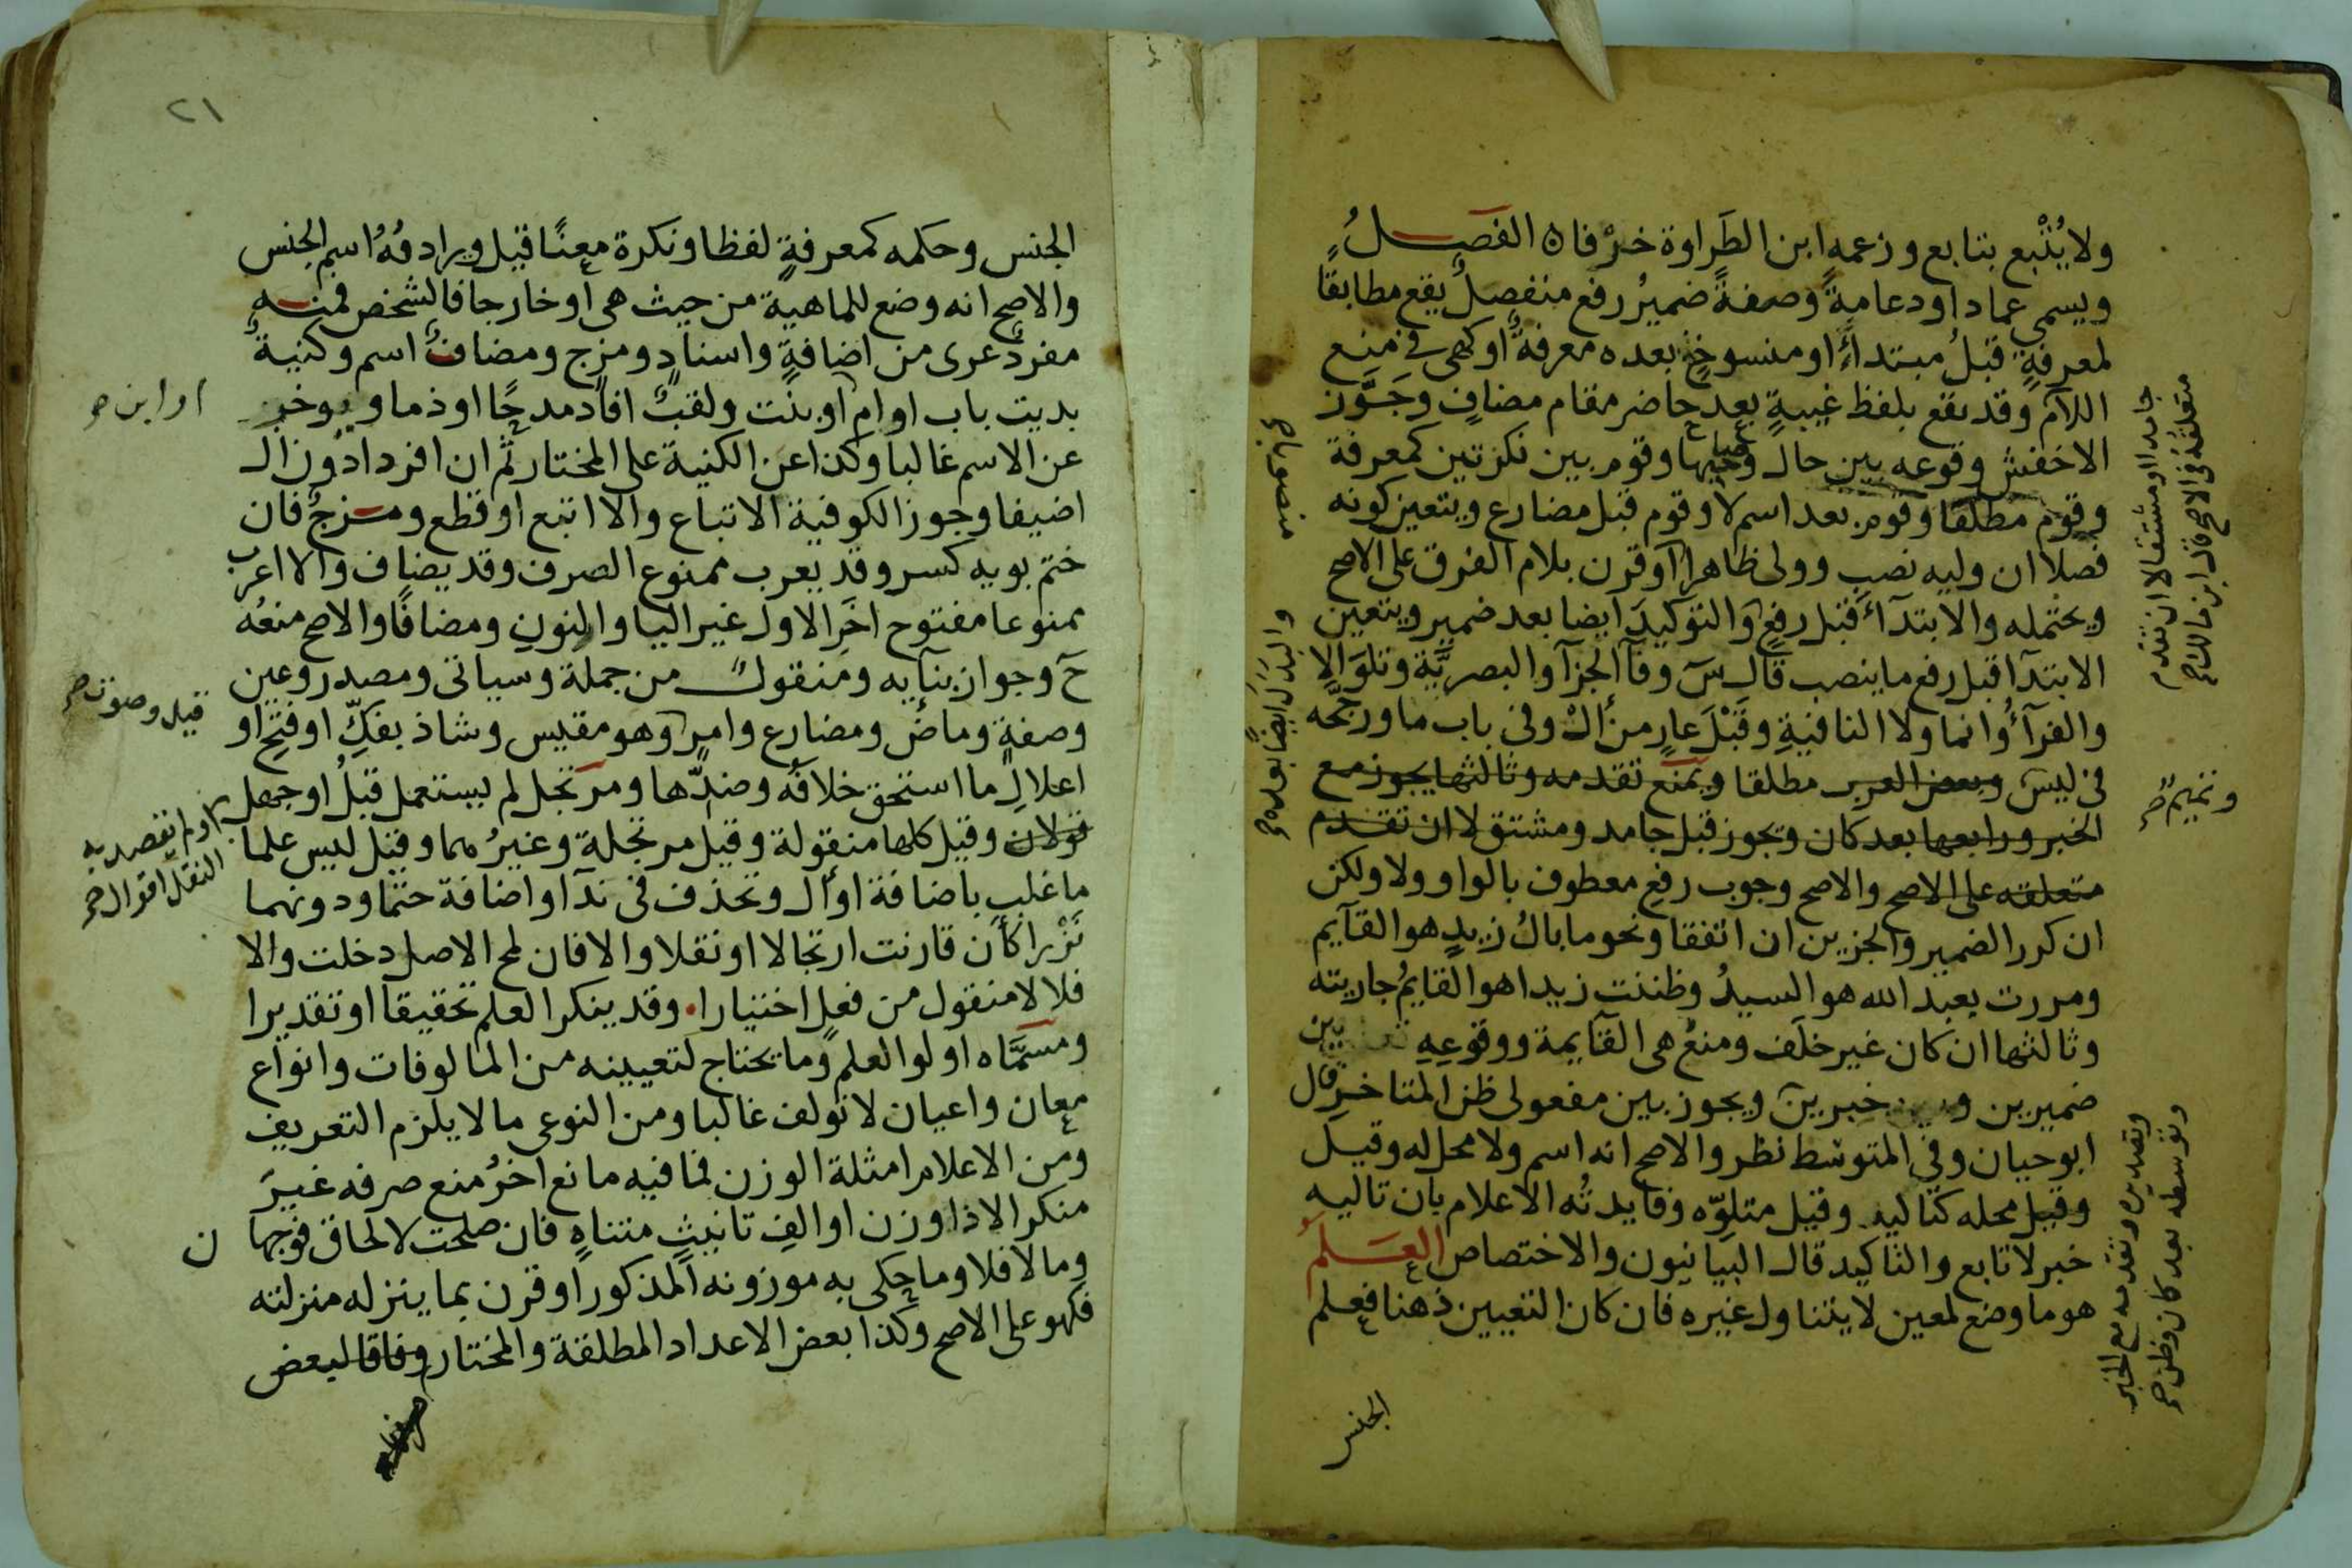 ولا يُتْبع بتابع وزعمه ابن الطَراوة خرْفاه الفصـل
ويسمى عمادا ودعامةً وصفةً ضميرُ رفع منفصلٌ يقع مطابقًا
لمعرفةٍ قبلُ مبتداءٍ او منسوخٍ بعده معرفةٌ او كهى فى منع
اللام وقد يقع بلفظ غيبةٍ بعد حاضر مقام مضافٍ وجَوَّز
الاخفش وقوعه بين حال وصاحبها وقوم بين نكرتين كمعرفة
وقوم مطلقا وقوم بعد اسم لا وقوم قبل مضارع ويتعين كونه
فصلا ان وليه نصب وولى ظاهرا او قرن بلام الفرق على الاصح
ويحتمله والابتداءَ قبل رفعٍ والتوكيدَ ايضا بعد ضمير ويتعين
الابتدا قبل رفع ما ينصب قال سَ وفآ الجزآ والبصريَّة وتلوَ الا
والفرآءُ وانما ولا النافيةِ وقَبْلَ عارٍ من أل وفى باب ما ورجَّحه
فى ليس وبعض العرب مطلقا ويمنع تقدمه وثالثها يجوز مع
الخبر ورابعها بعد كان وتجوز قبل جامد ومشتق لا ان تقدم
متعلقه على الاصح والاصح وجوب رفع معطوف بالواو ولا ولكن
ان كرر الضمير والجزين ان اتفقا ونحو ما بالُ زيدٍ هو القآيم
ومررت بعبد الله هو السيدُ وظننت زيدا هو القايمُ جاريته
وثالثها ان كان غير خلَف ومنعُ هى القآيمة ووقوعِهِ بين
ضميرين وبين خبرين ويجوز بين مفعولى ظن المتاخر قال
ابو حيان وفى المتوسط نظر والاصح انه اسم ولا محل له وقيل
وقيل محله كتاليه وقيل متلوّه وفايدتُه الاعلام بان تاليه
خبر لا تابع والتاكيد قال البيانيون والاختصاص العـلم
هو ما وضع لمعين لا يتناول غيره فان كان التعيين ذهنا فعلم
الجنس
جامدا او مشتقا لا ان تقدم
متعلقه فى الاصح قال ابن مالك صح
وتميم صح
وتصديره وتقدمه مع الخبر
وتوسطه بعد كان وظن صح
منصوبا صح
والبدل ايضا بعده صح
٢١
الجنس وحكمه كمعرفةٍ لفظا ونكرة معنًا قيل ويرادفُهُ اسم الجنس
والاصح انه وضع للماهية من حيث هى او خارجا فالشخص فمنه
مفردٌ عرى من اضافةٍ واسنادٍ ومزج ومضافٌ اسم وكنيةٌ
بديت باب او ام او بنت ولقبٌ افاد مدحًا او ذما ويوخر
عن الاسم غالبا وكذا عن الكنية على المختار ثم ان افردا دون ال
اضيفا وجوز الكوفية الاتباع والا اتبع او قطع ومزجٌ فان
ختم بويه كسر وقد يعرب ممنوع الصرف وقد يضاف والا اعرب
ممنوعا مفتوح اخَر الاول غير اليا والنون ومضافًا والاصح منعُه
حَ وجواز بنآيه ومنقولٌ من جملة وسياتى ومصدر وعين
وصفةٍ وماضٍ ومضارع وامر وهو مقيس وشاذ بفكِّ او فتحٍ او
اعلالٍ ما استحق خلافَه وضدِّها ومرتجل لم يستعمل قبلُ او جهل
قولان وقيل كلها منقولة وقيل مرتجلة وغيرُ مما وقيل ليس علما
ما غلب باضافة او أل وتحذف فى ندآ او اضافة حتما ودونهما
نَزْرا كأن قارنت ارتجالا او نقلا والا فان لمح الاصل دخلت والا
فلا لا منقول من فعلٍ اختيارا وقد ينكر العلم تحقيقا او تقديرا
ومسمَّاه اولوا العلم وما يحتاج لتعيينه من المالوفات وانواع
معان واعيان لا تولف غالبا ومن النوعى ما لا يلزم التعريف
ومن الاعلام امثلة الوزن فما فيه مانع اخرُ منع صرفه غيرَ
منكر الا ذا وزن او الفِ تانيثٍ متناهٍ فان صلحت لالحاق فوجها
وما لا فلا وما حكى به موزونه المذكور او قرن بما ينزله منزلته
فكهو على الاصح وكذا بعض الاعداد المطلقة والمختار وفاقا لبعض
او ابن صح
قيل وصوت صح
او لم يقصد به
النقل اقوال صح
ن